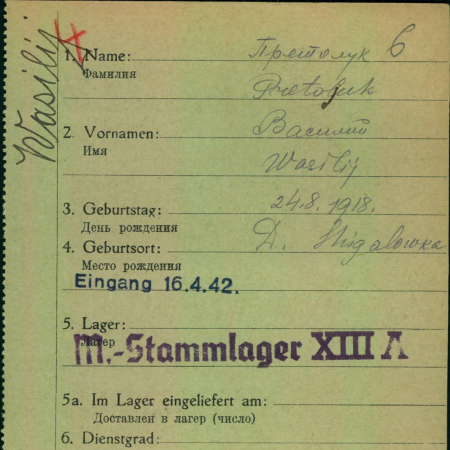 Wasilij
1. Name: Претолук 6
Фамилия
Pretoluk
2. Vornamen: Василий
Имя
Wasilij
3. Geburtstag: 24.8.1918.
День рождения
4. Geburtsort: D.
Место рождения
Eingang 16.4.42.
5. Lager:
Лагер
M.-Stammlager XIII A
5a. Im Lager eingeliefert am:
Доставлен в лагер (число)
6. Dienstgrad: